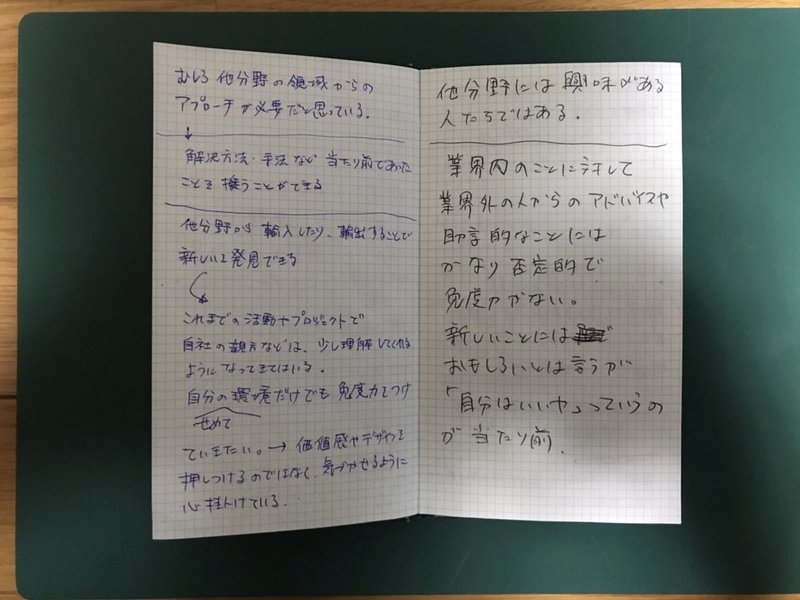 むしろ他分野の領域からの
アプローチが必要だと思っている。
↓
解決方法・手法など当たり前であった
ことを疑うことができる
他分野から輸入したり、輸出することで
新しいこと発見できる
これまでの活動やプロジェクトで
自社の親方などは、少し理解してくれる
ようになってきてはいる。
自分の環境だけでも免疫力をつけ
せめて
ていきたい。→価値感やデザインを
押しつけるのではなく、気づかせるように
心掛けている。
他分野には興味がある
人たちではある。
業界内のことに対して
業界外の人からのアドバイスや
助言的なことには
かなり否定的で
免疫力がない。
新しいことには
おもしろいとは言うが
「自分はいいや」っていうの
が当たり前.